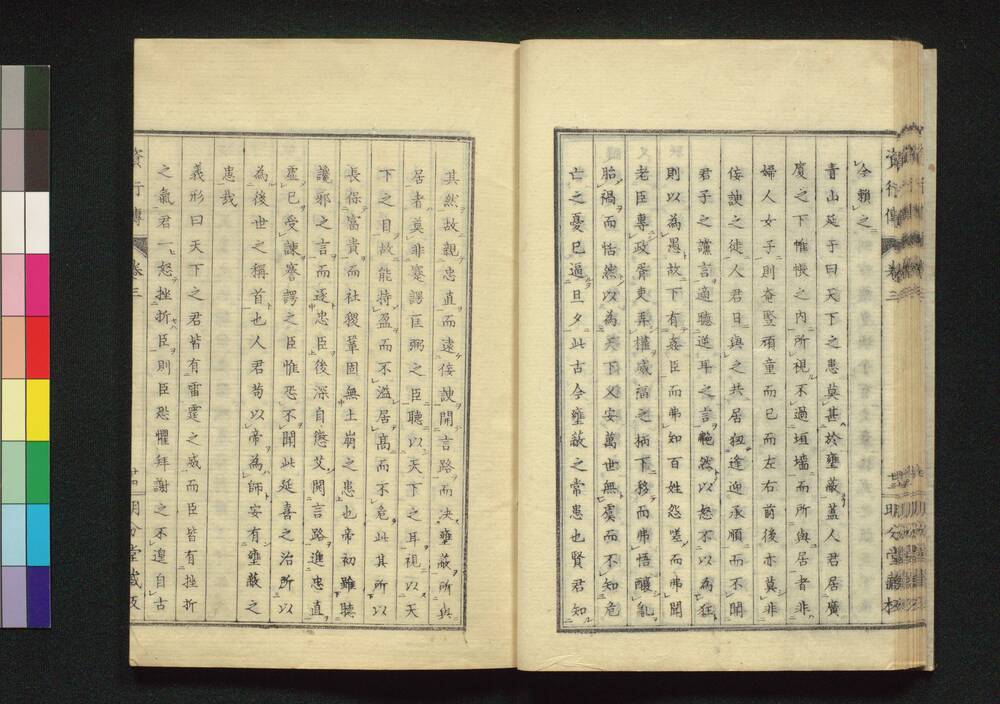 今賴之
青山延于曰天下之患莫甚於壅蔽蓋人君居廣
廈之下帷幄之內所視不過垣墻而所與居者非
婦人女子則奄豎頑童而已而左右前後亦莫非
侫諛之徒人君日與之共居狃逢迎承順而不聞
君子之讜言適聽逆耳之言艴然以怒不以為狂
則以為愚故下有姦臣而弗知百姓怨嗟而弗聞
老臣專政胥吏弄權威福之柄下移而弗悟釀亂
胎禍而恬然以為天下乂安萬世無虞而不知危
亡之憂已逼旦夕此古今壅蔽之常患也賢君知
其然故親忠直而遠侫諛開言路而决壅蔽所與
居者莫非蹇諤匡弼之臣聽以天下之耳視以天
下之目故能持盈而不溢居髙而不危此其所以
長保富貴而社稷鞏固無土崩之患也帝初雖聽
讒邪之言而逐忠臣後深自懲艾開言路進忠直
虛己受諫謇諤之臣惟恐不聞此延喜之治所以
為後世之稱首也人君苟以帝為師安有壅蔽之
患哉
義形曰天下之君皆有雷霆之威而臣皆有挫折
之氣君一怒挫折臣則臣恐懼拜謝之不遑自古
卷三
明分堂藏板